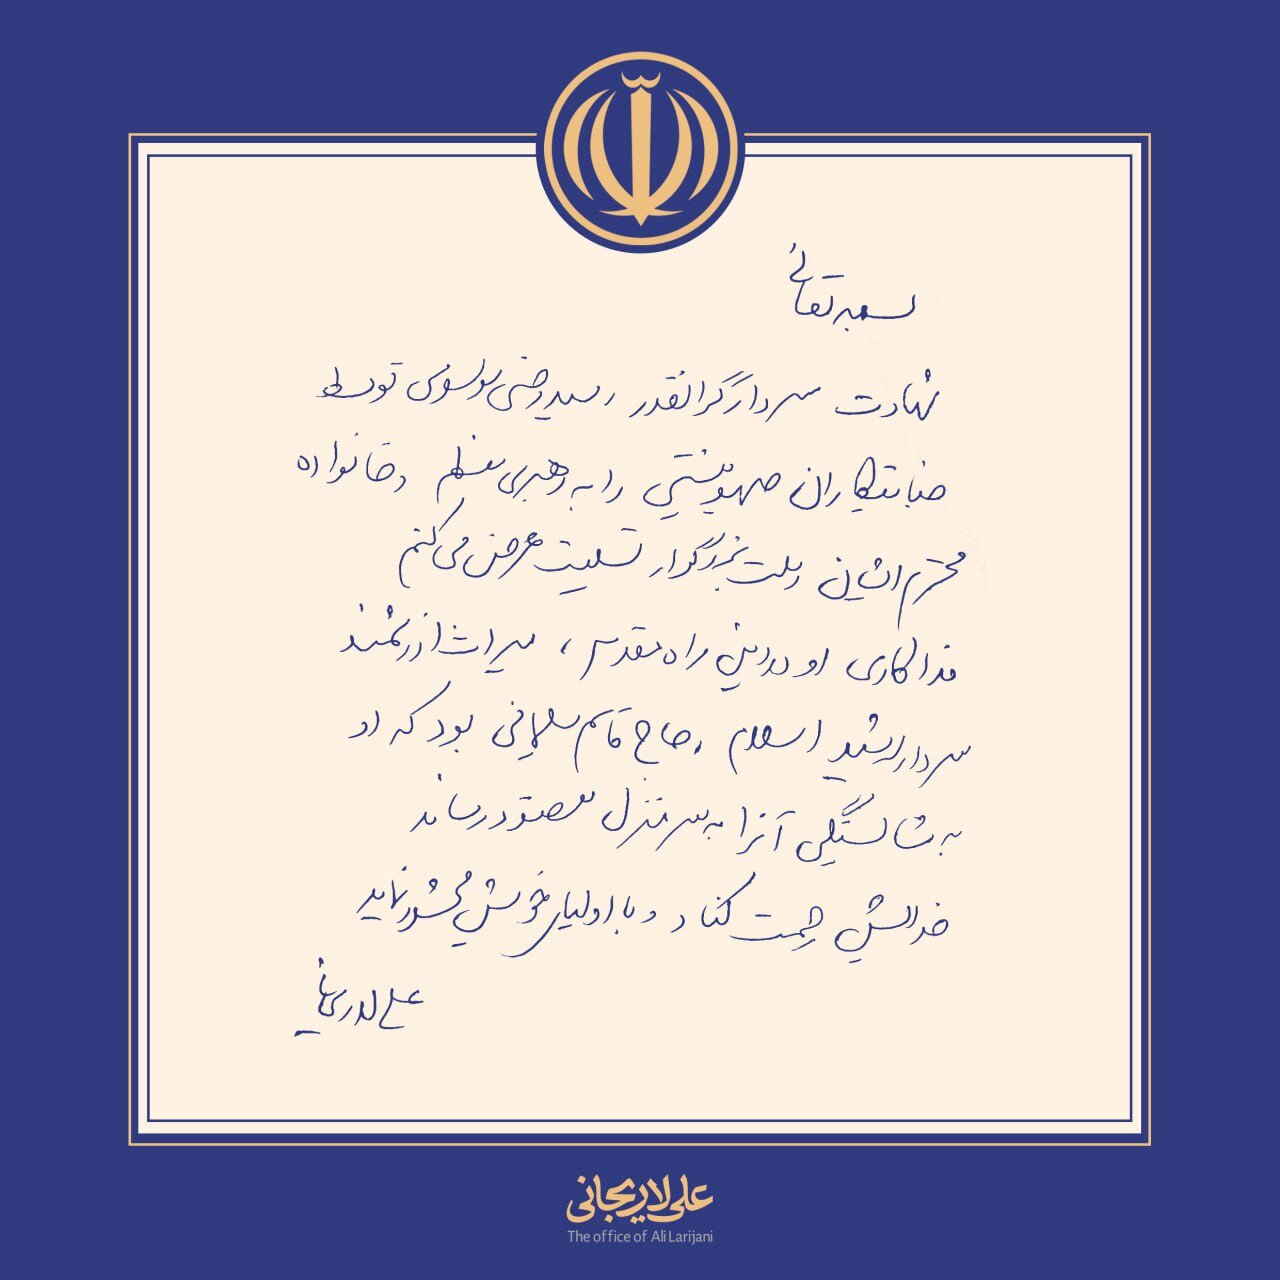 بسمه تعالی
شهادت سردار گرانقدر، سید رضی موسوی توسط
جنایتکاران صهیونیستی را به رهبری معظم و خانواده
محترم ایشان و ملت بزرگوار تسلیت عرض می کنم
فداکاری او در این راه مقدس، میراث ارزشمند
سردار رشید اسلام، حاج قاسم سلیمانی بود که او
به شایستگی آنرا به سر منزل مقصود رساند
خدایش رحمت کناد و با اولیای خویش محشور نماید
علی لاریجانی
علی لاریجانی
The office of Ali Larijani